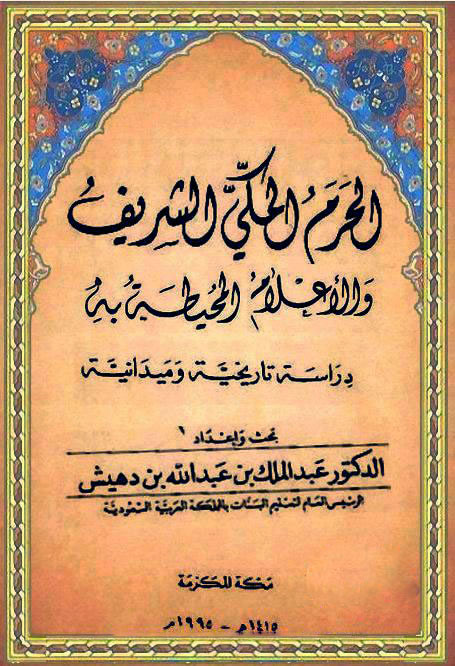 الحَرَمُ المَكيُّ الشَرِيفُ
وَالأعْلَامُ المُحيطَة بِهِ
دِرَاسَة تاريخيَّة وَمَيدَانيَّة
بحث وَإعْدَاد
الدكتور عَبد الملك بن عَبد الله بن دهيش
الرئيس العَام لتعليم البَنات بالمملكة العَربيَّة السَّعوديَّة
مَكة المكرمَة
١٤١٥هـ - ١٩٩٥م